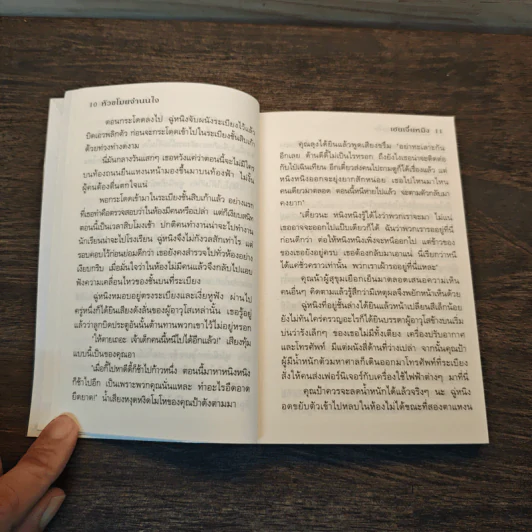 10 หัวขโมยจำนนใจ
ตอนกระโดดลงไป ฉู่หนิงจับผนังระเบียงไว้แล้ว
บิดเอวพลิกตัว ก่อนจะกระโดดเข้าไปในระเบียงชั้นสิบเก้า
ด้วยท่วงท่างดงาม
นี่มันกลางวันแสกๆ เธอหวังแค่ว่าตอนนี้จะไม่มีใคร
บนท้องถนนยืนแหงนหน้ามองขึ้นมาบนท้องฟ้า ไม่งั้น
ผู้คนต้องตื่นตกใจแน่
พอกระโดดเข้ามาในระเบียงชั้นสิบเก้าแล้ว อย่างแรก
ที่เธอทำคือตรวจสอบว่าในห้องมีคนหรือเปล่า แต่ก็เงียบสนิท
ตอนนี้เป็นเวลาสิบโมงเช้า ปกติคนทำงานน่าจะไปทำงาน
นักเรียนน่าจะไปโรงเรียน ฉู่หนิงจึงไม่กังวลสักเท่าไร แต่
รอบคอบไว้ก่อนย่อมดีกว่า เธอยังคงสำรวจไปทั่วห้องอย่าง
เงียบกริบ เมื่อมั่นใจว่าในห้องไม่มีคนแล้วจึงกลับไปแอบ
ฟังความเคลื่อนไหวของชั้นบนที่ระเบียง
ฉู่หนิงหมอบอยู่ตรงระเบียงและเงี่ยหูฟัง ผ่านไป
ครู่หนึ่งก็ได้ยินเสียงดังตึงตังของผู้อาวุโสเหล่านั้น เธอรู้อยู่
แล้วว่าลูกบิดประตูอันนั้นต้านทานพวกเขาไว้ไม่อยู่หรอก
'ให้ตายเถอะ เจ้าเด็กคนนี้หนีไปได้อีกแล้ว!' เสียงทุ้ม
แบบนี้เป็นของคุณอา
'เมื่อกี้ไปหาตี้ตี้ก็ช้าไปก้าวหนึ่ง ตอนนี้มาหาหนิงหนิง
ก็ช้าไปอีก เป็นเพราะพวกคุณนั่นแหละ ทำอะไรอืดอาด
ยืดยาด!' น้ำเสียงหงุดหงิดโมโหของคุณป้าดังตามมา
เสอเจี๋ยหนิง 11
คุณลุงได้ยินแล้วพูดเสียงขรึม 'อย่าทะเลาะกัน
อีกเลย ด้านตี้ตี้ไม่เป็นไรหรอก ถึงยังไงเธอน่าจะติดต่อ
หนิงหนิงออกจะยุ่งยากสักหน่อย เธอไปไหนมาไหน
คนเดียวมาตลอด ตอนนี้หนีหายไปแล้ว จะตามตัวกลับมา
คงยาก'
'เดี๋ยวนะ หนิงหนิงรู้ได้ไงว่าพวกเราจะมา ไม่แน่
เธออาจจะออกไปแป๊บเดียวก็ได้ ฉันว่าพวกเรารออยู่ที่นี่
ก่อนดีกว่า ต่อให้หนิงหนิงเพิ่งจะหนีออกไป แต่ข้าวของ
ของเธอยังอยู่ครบ เธอต้องกลับมาเอาแน่ นี่เรียกว่าหนี
ได้แค่ชั่วคราวเท่านั้น พวกเราเฝ้ารออยู่ที่นี่แหละ'
คุณน้าผู้สุขุมเยือกเย็นมาตลอดเสนอความเห็น
คนอื่นๆ คิดตามแล้วรู้สึกว่ามีเหตุผลจึงพยักหน้าเห็นด้วย
ฉู่หนิงที่อยู่ชั้นล่างได้ยินแล้วหน้าเปลี่ยนสีเล็กน้อย
ยังไม่ทันได้คร่ำครวญอะไรก็ได้ยินบรรดาผู้อาวุโสข้างบนเริ่ม
บ่นว่ารังเล็กๆ ของเธอไม่มีทั้งเตียง เครื่องปรับอากาศ
และโทรศัพท์ มีแต่ผนังสี่ด้านที่ว่างเปล่า จากนั้นคุณป้า
ผู้มีน้ำหนักตัวมหาศาลก็เดินออกมาโทรศัพท์ที่ระเบียง
สั่งให้คนส่งเฟอร์นิเจอร์กับเครื่องใช้ไฟฟ้าต่างๆ มาที่นี่
คุณป้าควรจะลดน้ำหนักได้แล้วจริงๆ นะ ฉู่หนิง
อดขยับตัวเข้าไปหลบในห้องไม่ได้ขณะที่สองตาแหงน